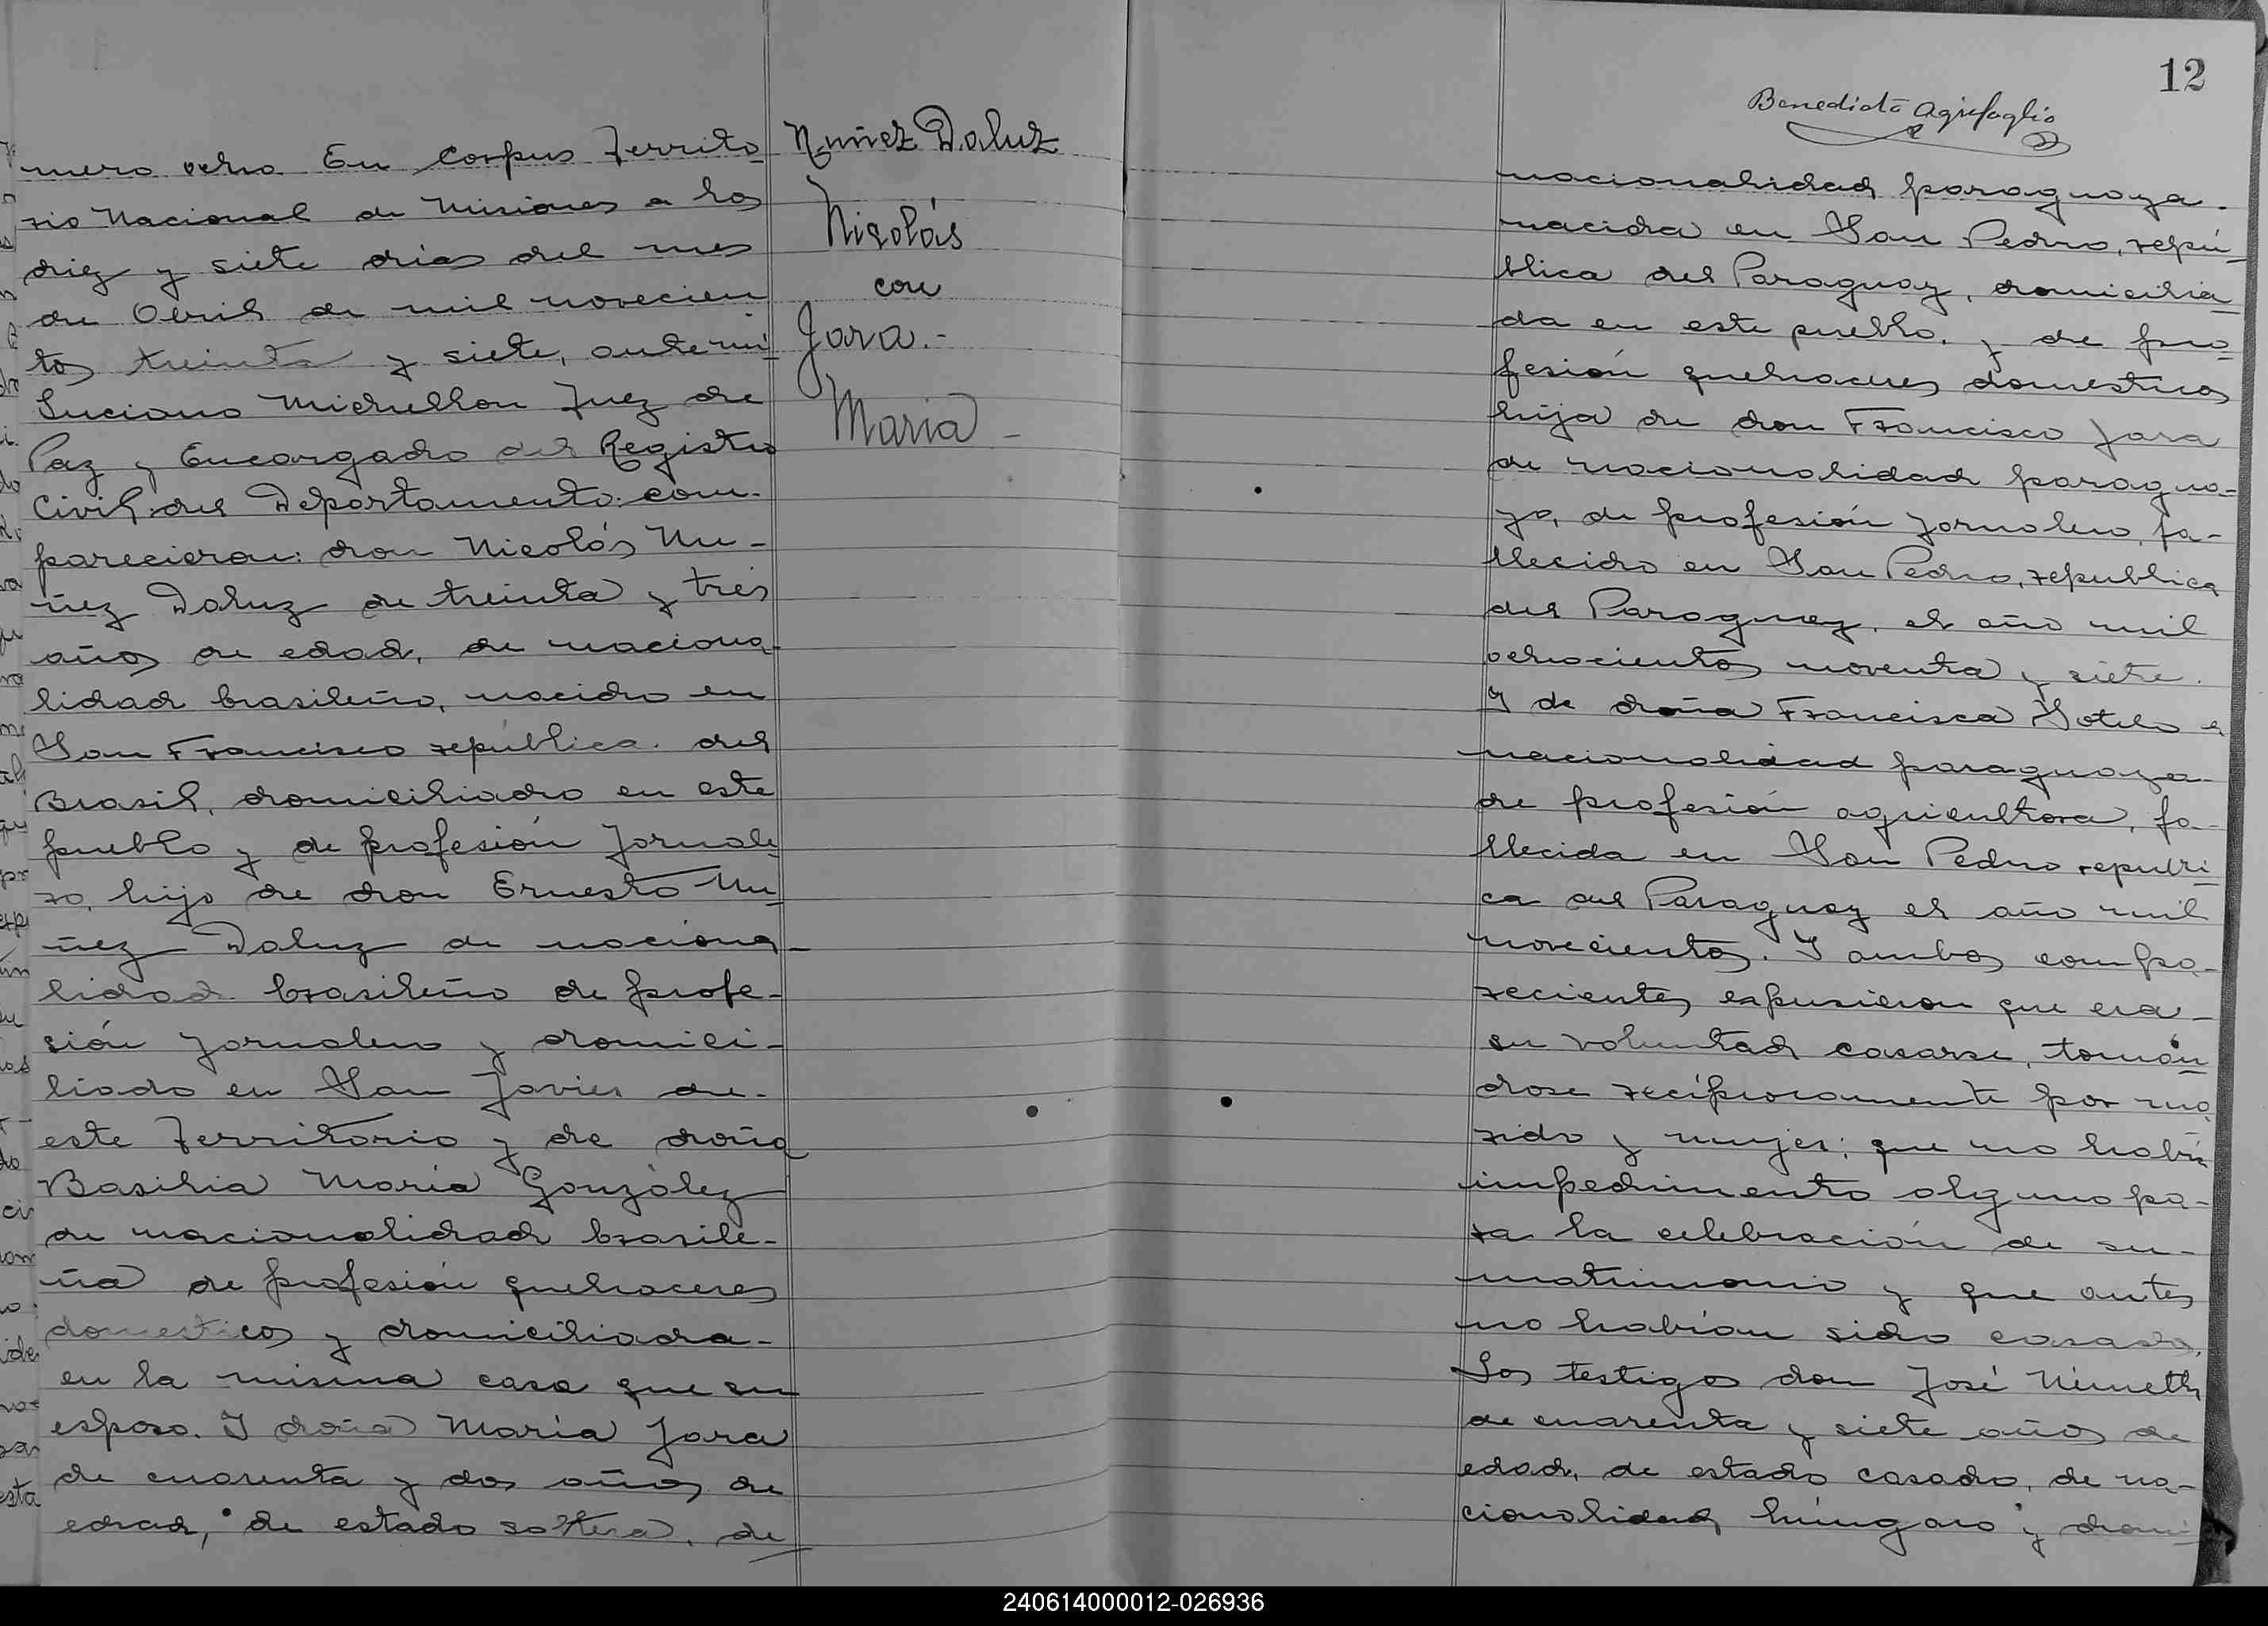 mero ocho En Corpus Territo
rio Nacional de Misiones a los
diez y siete dias del mes
de Abril de mil novecien
tos treinta y siete, ante mi
Luciano Michellon Juez de
Paz y Encargado del Registro
Civil del Departamento: com-
parecieron: don Nicolás Nu-
ñez Daluz de treinta y tres
años de edad, de naciona
lidad brasileño, nacido en
San Francisco república del
Brasil, domiciliado en este
pueblo y de profesión Jornale
ro, hijo de don Ernesto Nu
ñez Daluz de naciona-
lidad brasileño de profe-
sión Jornalero y domici-
liado en San Javier de
este Territorio y de doña
Basilia Maria González
de nacionalidad brasile-
ña de profesión quehaceres
domesticos y domiciliada
en la misma casa que su
esposo. Y doña María Jara
de cuarenta y dos años de
edad, de estado soltera, de
Nuñez Daluz
Nicolás
con
Jara.-
Maria -
12
Benedicto Agrefoglio
nacionalidad paraguaya.
nacida en San Pedro, repú
blica del Paraguay, domicilia
da en este pueblo, y de pro
fesión quehaceres domesticos
hija de don Francisco Jara
de nacionalidad paragua-
yo, de profesión jornalero, fa-
llecido en San Pedro, republica
del Paraguay, el año mil
ochocientos noventa y siete.
Y de doña Francisca Sotelo de
nacionalidad paraguaya
de profesión agricultora, fa-
llecida en San Pedro republi
ca del Paraguay el año mil
novecientos. Y ambos compa-
recientes expusieron que era
su voluntad casarse, tomán
dose recíprocamente por ma
rido y mujer; que no había
impedimento alguno pa-
ra la celebración de su-
matrimonio y que antes
no habían sido casados.
Los testigos don José Németh
de cuarenta y siete años de
edad, de estado casado, de na-
cionalidad húngaro y domi
240614000012-026936